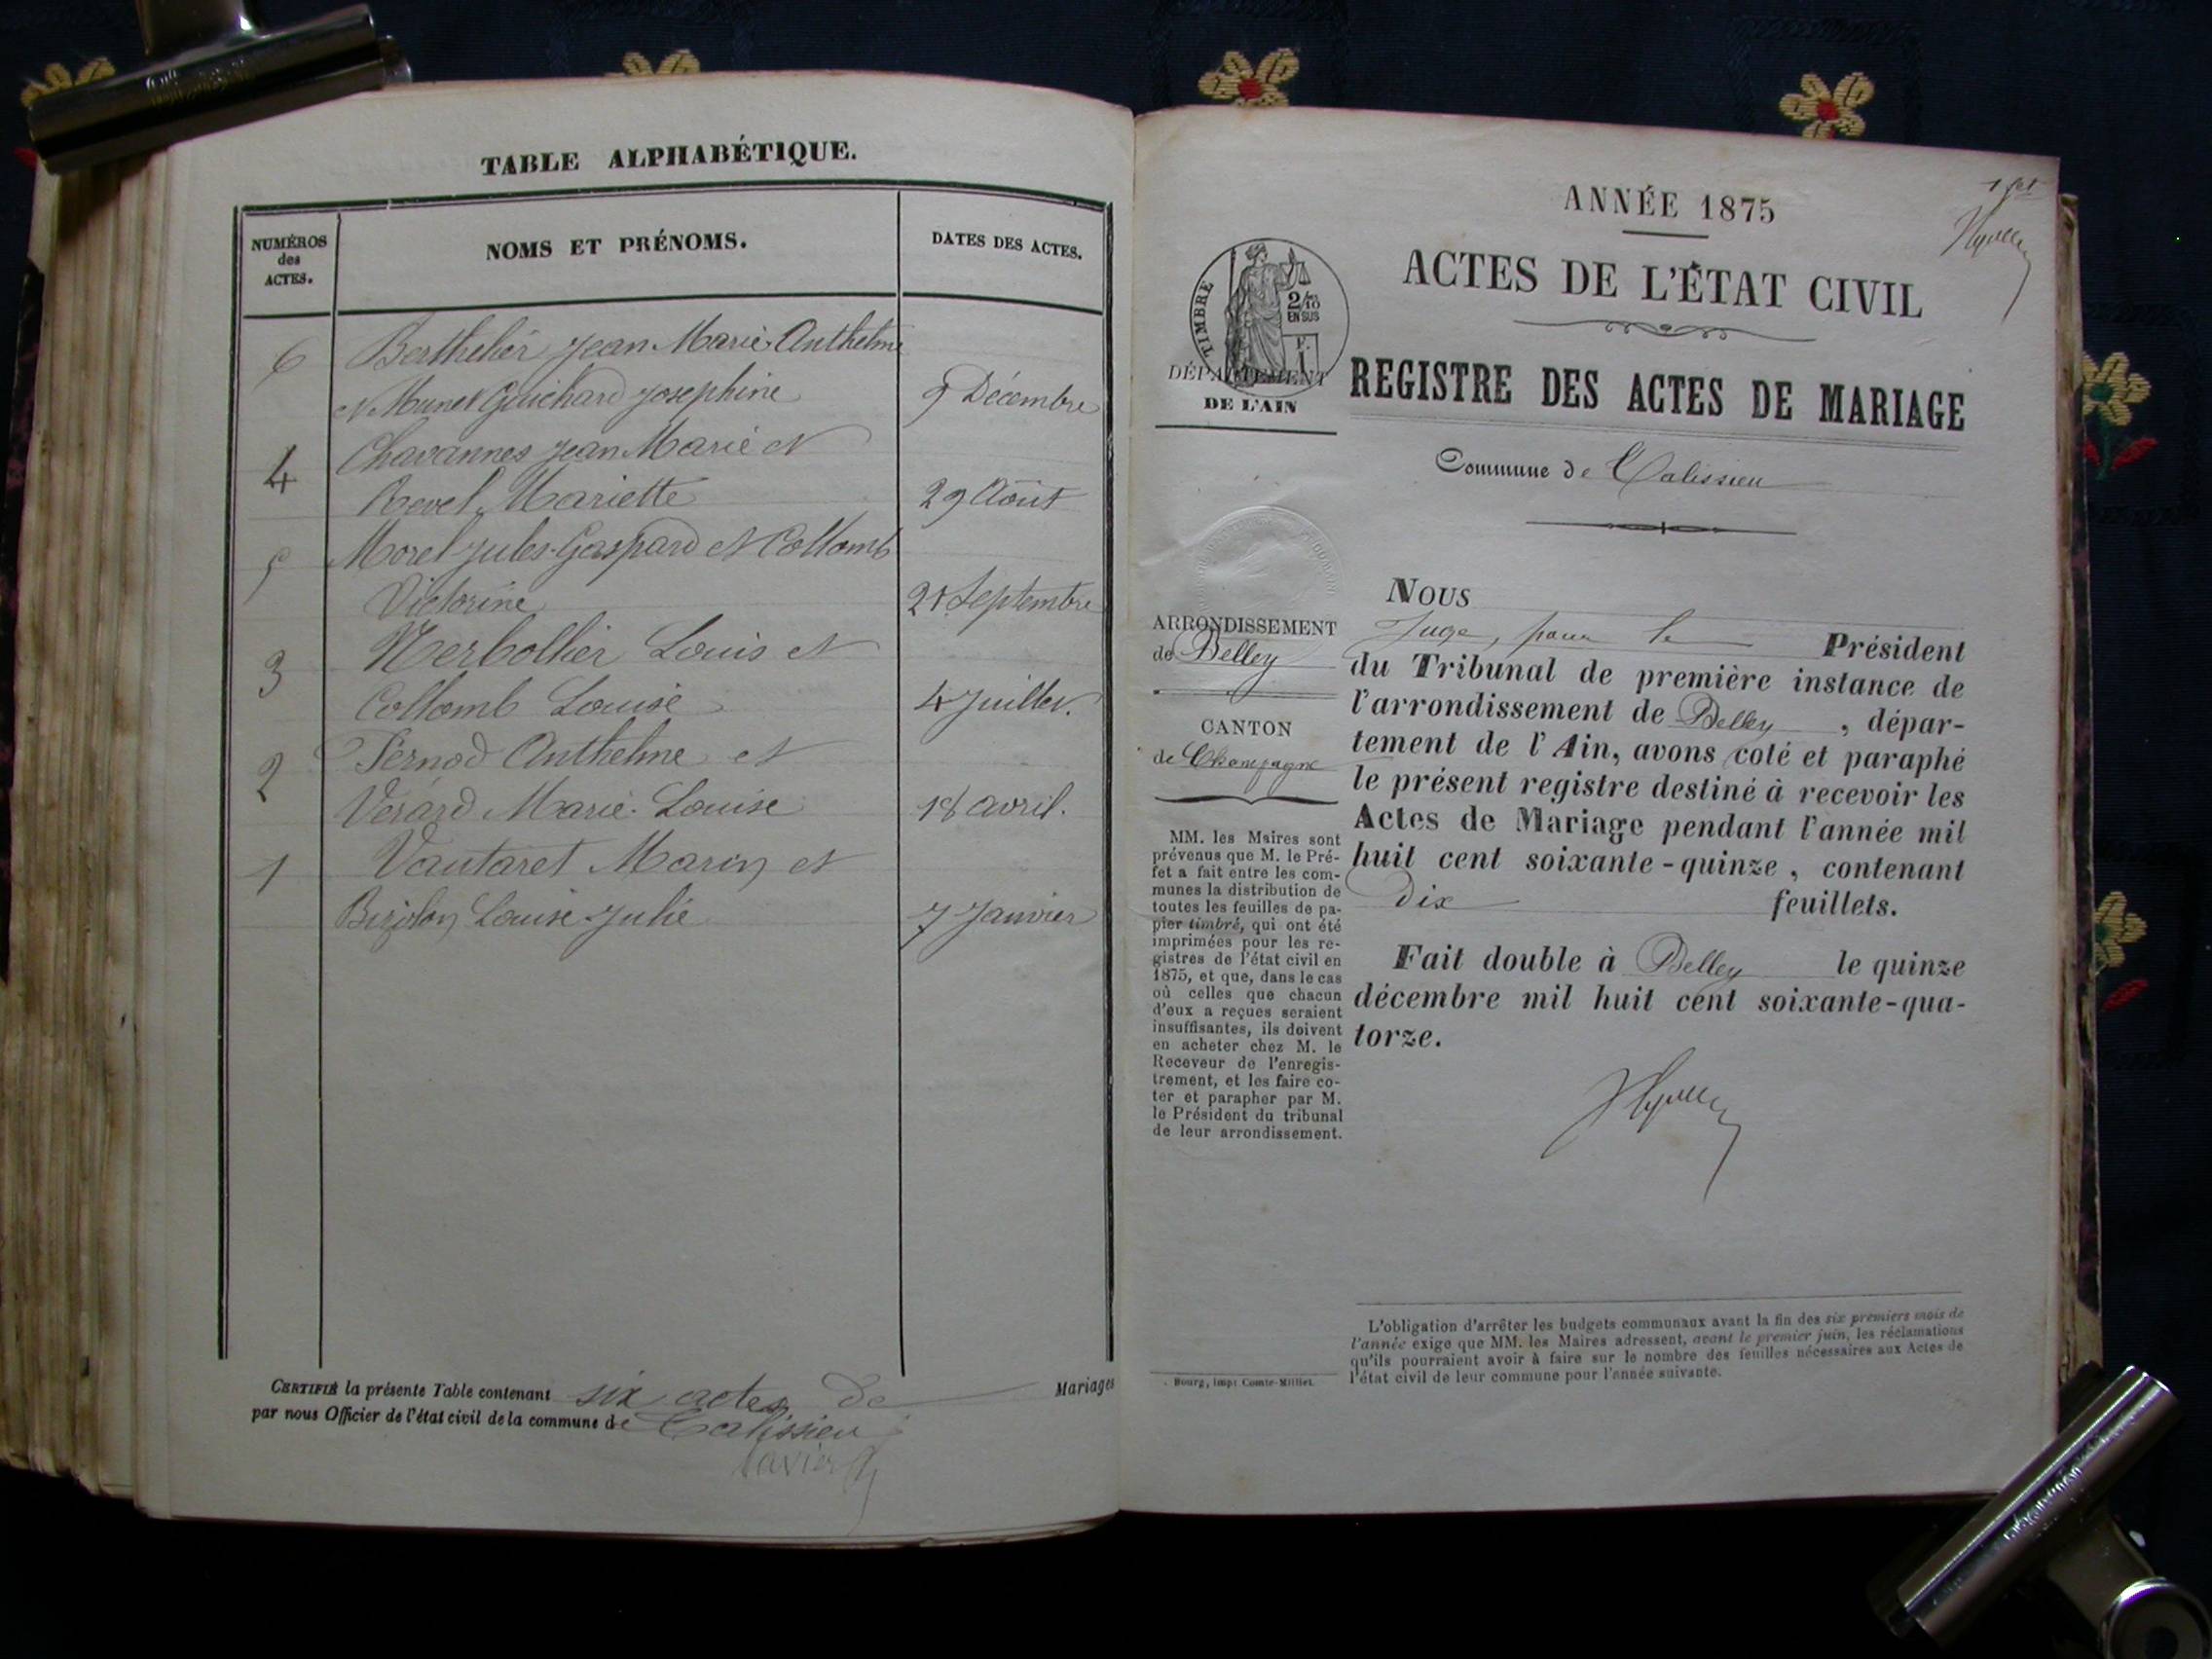 TABLE ALPHABÉTIQUE.
NUMÉROS
des
ACTES.
NOMS ET PRÉNOMS.
DATES DES ACTES.
6 Berthelier Jean Marie Anthelme
et Munet Guichard Josephine 9 Décembre
4 Chavannes Jean Marie et
Revel Mariette 29 Août
5 Morel Jules Gaspard et Collomb
Victorine 21 Septembre
3 Nerbollier Louis et
Collomb Louise 4 Juillet.
2 Pernod Anthelme et
Vérard Marie-Louise 18 avril.
1 Vautaret Marin et
Louise Julie 7 Janvier
CERTIFIÉ la présente Table contenant six actes de Mariages
par nous Officier de l'état civil de la commune de Talissieu
ANNÉE 1875
ACTES DE L'ÉTAT CIVIL
REGISTRE DES ACTES DE MARIAGE
Commune de Talissieu
TIMBRE
2/10
EN SUS
F.
1
DÉPARTEMENT
DE L'AIN
ARRONDISSEMENT
de Belley
CANTON
de Champagne
MM. les Maires sont
prévenus que M. le Pré-
fet a fait entre les com-
munes la distribution de
toutes les feuilles de pa-
pier timbré, qui ont été
imprimées pour les re-
gistres de l'état civil en
1875, et que, dans le cas
où celles que chacun
d'eux a reçues seraient
insuffisantes, ils doivent
en acheter chez M. le
Receveur de l'enregis-
trement, et les faire co-
ter et parapher par M.
le Président du tribunal
de leur arrondissement.
Bourg, impr Comte-Milliet.
NOUS
Juge, pour le Président
du Tribunal de première instance de
l'arrondissement de Belley, dépar-
tement de l'Ain, avons coté et paraphé
le présent registre destiné à recevoir les
Actes de Mariage pendant l'année mil
huit cent soixante-quinze, contenant
dix feuillets.
Fait double à Belley le quinze
décembre mil huit cent soixante-qua-
torze.
L'obligation d'arrêter les budgets communaux avant la fin des six premiers mois de
l'année exige que MM. les Maires adressent, avant le premier juin, les réclamations
qu'ils pourraient avoir à faire sur le nombre des feuilles nécessaires aux Actes de
l'état civil de leur commune pour l'année suivante.